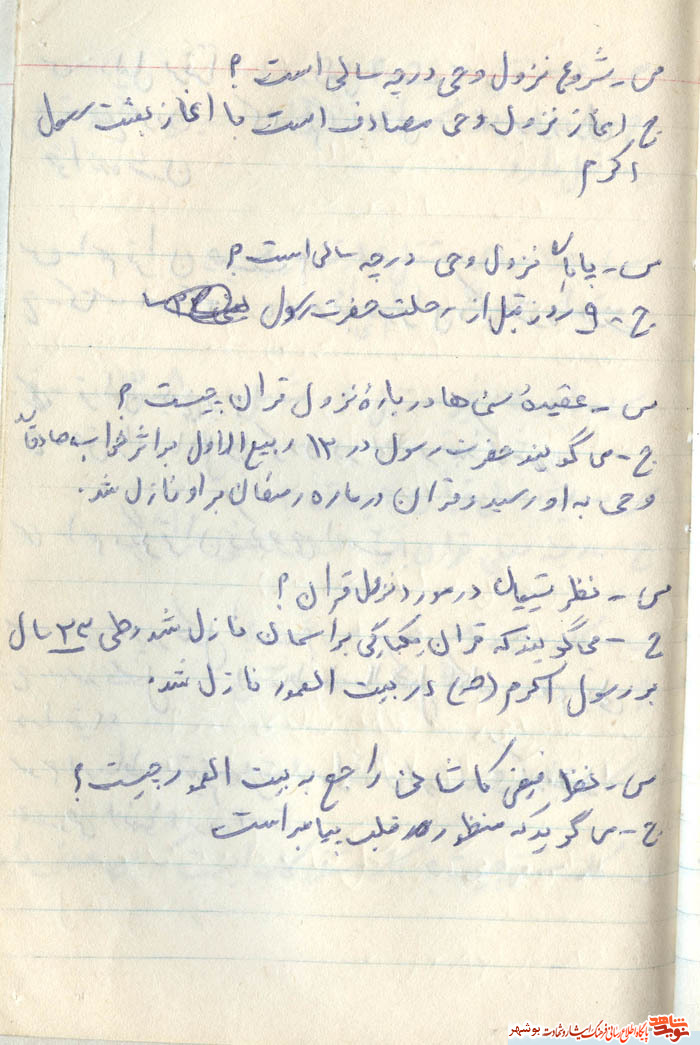 س - شروع نزول وحی در چه سالی است ؟
ج اغاز نزول وحی مصادف است با اغاز بعثت رسول
اکرم
س - پایان نزول وحی در چه سالی است ؟
ج - ۹ روز قبل از رحلت حضرت رسول
س - عقیدهٔ سنی ها دربارهٔ نزول قران چیست ؟
ج - می گویند حضرت رسول در ۱۳ ربیع الاول بر اثر خواب صادقه
وحی به او رسید و قران در ماه رمضان بر او نازل شد.
س - نظر شیعیان در مورد نزول قران ؟
ج - می گویند که قران یکبارگی بر اسمان نازل شد و طی ۲۳ سال
بر رسول اکرم (ص) در بیت المعمور نازل شد.
س - نظر فیض کاشانی راجع به بیت المعمور چیست ؟
ج - می گوید که منظور قلب پیامبر است
نوید شاهد
پایگاه اطلاع رسانی فرهنگ ایثار و شهادت بوشهر